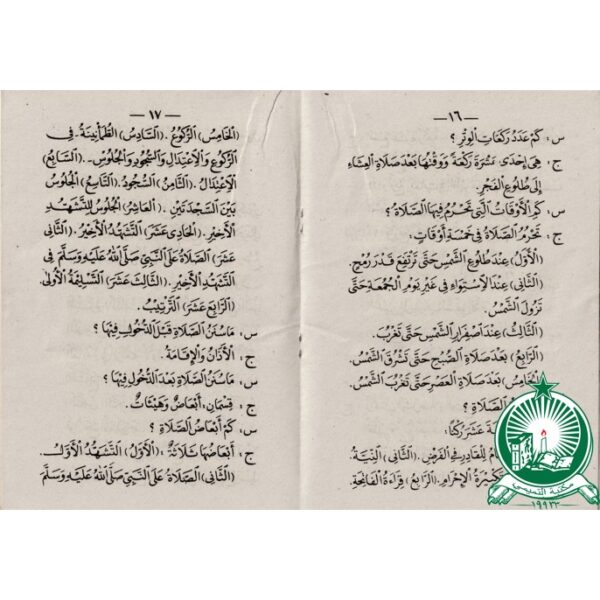 — ١٦ —
س ، كَمْ عَدَدُ رَكَعَاتِ الْوِتْرِ ؟
ج ، هِيَ إِحْدَى عَشْرَةَ رَكْعَةً وَوَقْتُهَا بَعْدَ صَلَاةِ الْعِشَاءِ
إِلَى طُلُوعِ الْفَجْرِ
س ، كَمِ الْأَوْقَاتُ الَّتِي تَحْرُمُ فِيهَا الصَّلَاةُ ؟
ج ، تَحْرُمُ الصَّلَاةُ فِي خَمْسَةِ أَوْقَاتٍ ،
(الْأَوَّلُ) عِنْدَ طُلُوعِ الشَّمْسِ حَتَّى تَرْتَفِعَ قَدْرَ رُمْحٍ .
(الثَّانِي) عِنْدَ الْاِسْتِوَاءِ فِي غَيْرِ يَوْمِ الْجُمُعَةِ حَتَّى
تَزُولَ الشَّمْسُ .
(الثَّالِثُ) عِنْدَ اصْفِرَارِ الشَّمْسِ حَتَّى تَغْرُبَ .
(الرَّابِعُ) بَعْدَ صَلَاةِ الصُّبْحِ حَتَّى تَشْرُقَ الشَّمْسُ .
الْخَامِسُ) بَعْدَ صَلَاةِ الْعَصْرِ حَتَّى تَغْرُبَ الشَّمْسُ .
الصَّلَاةِ ؟
عَشَرَ رُكْنًا ،
لِلْقَادِرِ فِي الْفَرْضِ . (الثَّانِي) النِّيَّةُ .
تَكْبِيرَةُ الْإِحْرَامِ . (الرَّابِعُ) قِرَاءَةُ الْفَاتِحَةِ .
— ١٧ —
(الْخَامِسُ) الرُّكُوعُ . (السَّادِسُ) الطُّمَأْنِينَةُ . فِي
الرُّكُوعِ وَالْاِعْتِدَالِ وَالسُّجُودِ وَالْجُلُوسِ . (السَّابِعُ)
الْاِعْتِدَالُ . (الثَّامِنُ) السُّجُودُ . (التَّاسِعُ) الْجُلُوسُ
بَيْنَ السَّجْدَتَيْنِ . (الْعَاشِرُ) الْجُلُوسُ لِلتَّشَهُّدِ
الْأَخِيرِ . (الْحَادِى عَشَرَ) التَّشَهُّدُ الْأَخِيرُ . (الثَّانِى
عَشَرَ) الصَّلَاةُ عَلَى النَّبِيِّ صَلَّى اللهُ عَلَيْهِ وَسَلَّمَ فِى
التَّشَهُّدِ الْأَخِيرِ . (الثَّالِثَ عَشَرَ) التَّسْلِيمَةُ الْأُولَى .
(الرَّابِعَ عَشَرَ) التَّرْتِيبُ .
س ، مَا سُنَنُ الصَّلَاةِ قَبْلَ الدُّخُولِ فِيهَا ؟
ج ، الْأَذَانُ وَالْإِقَامَةُ .
س ، مَا سُنَنُ الصَّلَاةِ بَعْدَ الدُّخُولِ فِيهَا ؟
ج ، قِسْمَانِ ، أَبْعَاضٌ وَهَيْئَاتٌ .
س ، كَمْ أَبْعَاضُ الصَّلَاةِ ؟
ج ، أَبْعَاضُهَا ثَلَاثَةٌ ، (الْأَوَّلُ) التَّشَهُّدُ الْأَوَّلُ .
(الثَّانِى) الصَّلَاةُ عَلَى النَّبِيِّ صَلَّى اللهُ عَلَيْهِ وَسَلَّمَ